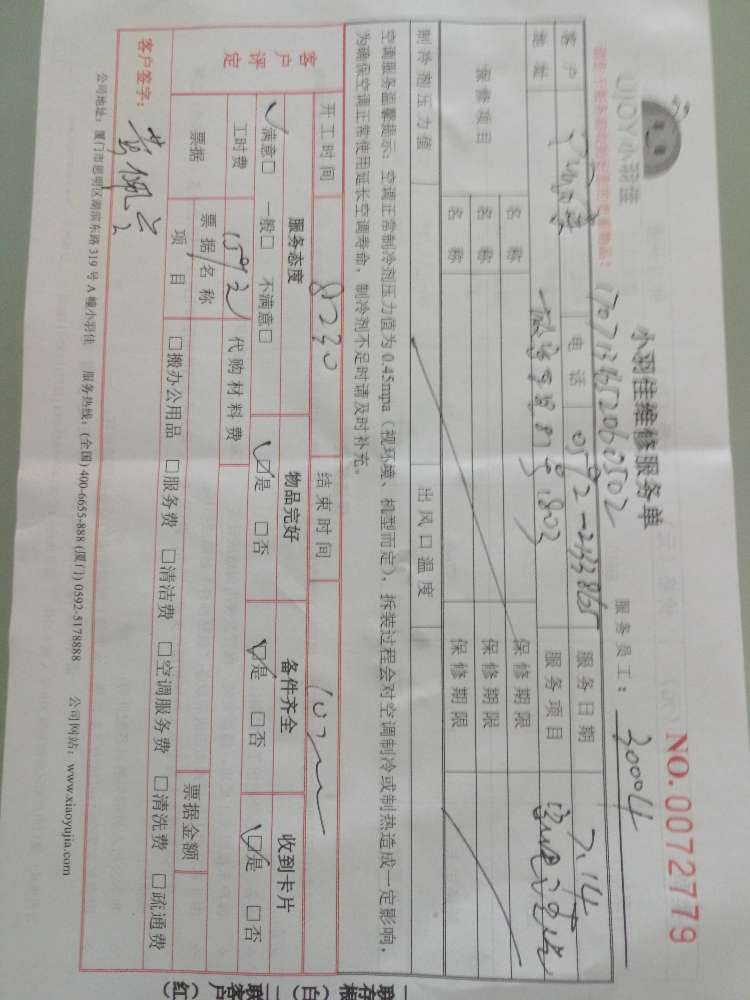 UJOY小羽佳
小羽佳维修服务单
NO.0072779
服务员工：30004
客户
电话 0592-2138165
服务日期 7.14
地址
服务项目
保修项目
名称 保修期限
名称 保修期限
名称 保修期限
制冷剂压力值 出风口温度
空调服务温馨提示：空调正常制冷剂压力值为 0.45mpa（视环境、机型而定），拆装过程会对空调制冷或制热造成一定影响，
为确保空调正常使用延长空调寿命，制冷剂不足时请及时补充。
开工时间 8:30 结束时间
客户评定
服务态度 物品完好 备件齐全 收到卡片
满意□ 一般□ 不满意□ □是 □否 □是 □否 □是 □否
工时费 代购材料费
票据 票据名称 票据金额
项目 □搬办公用品 □服务费 □清洁费 □空调服务费 □清洗费 □疏通费
客户签字：
公司地址：厦门市思明区湖滨东路 319 号 A 幢小羽佳 服务热线：(全国) 400-6655-888 (厦门) 0592-5178888 公司网站：www.xiaoyujia.com